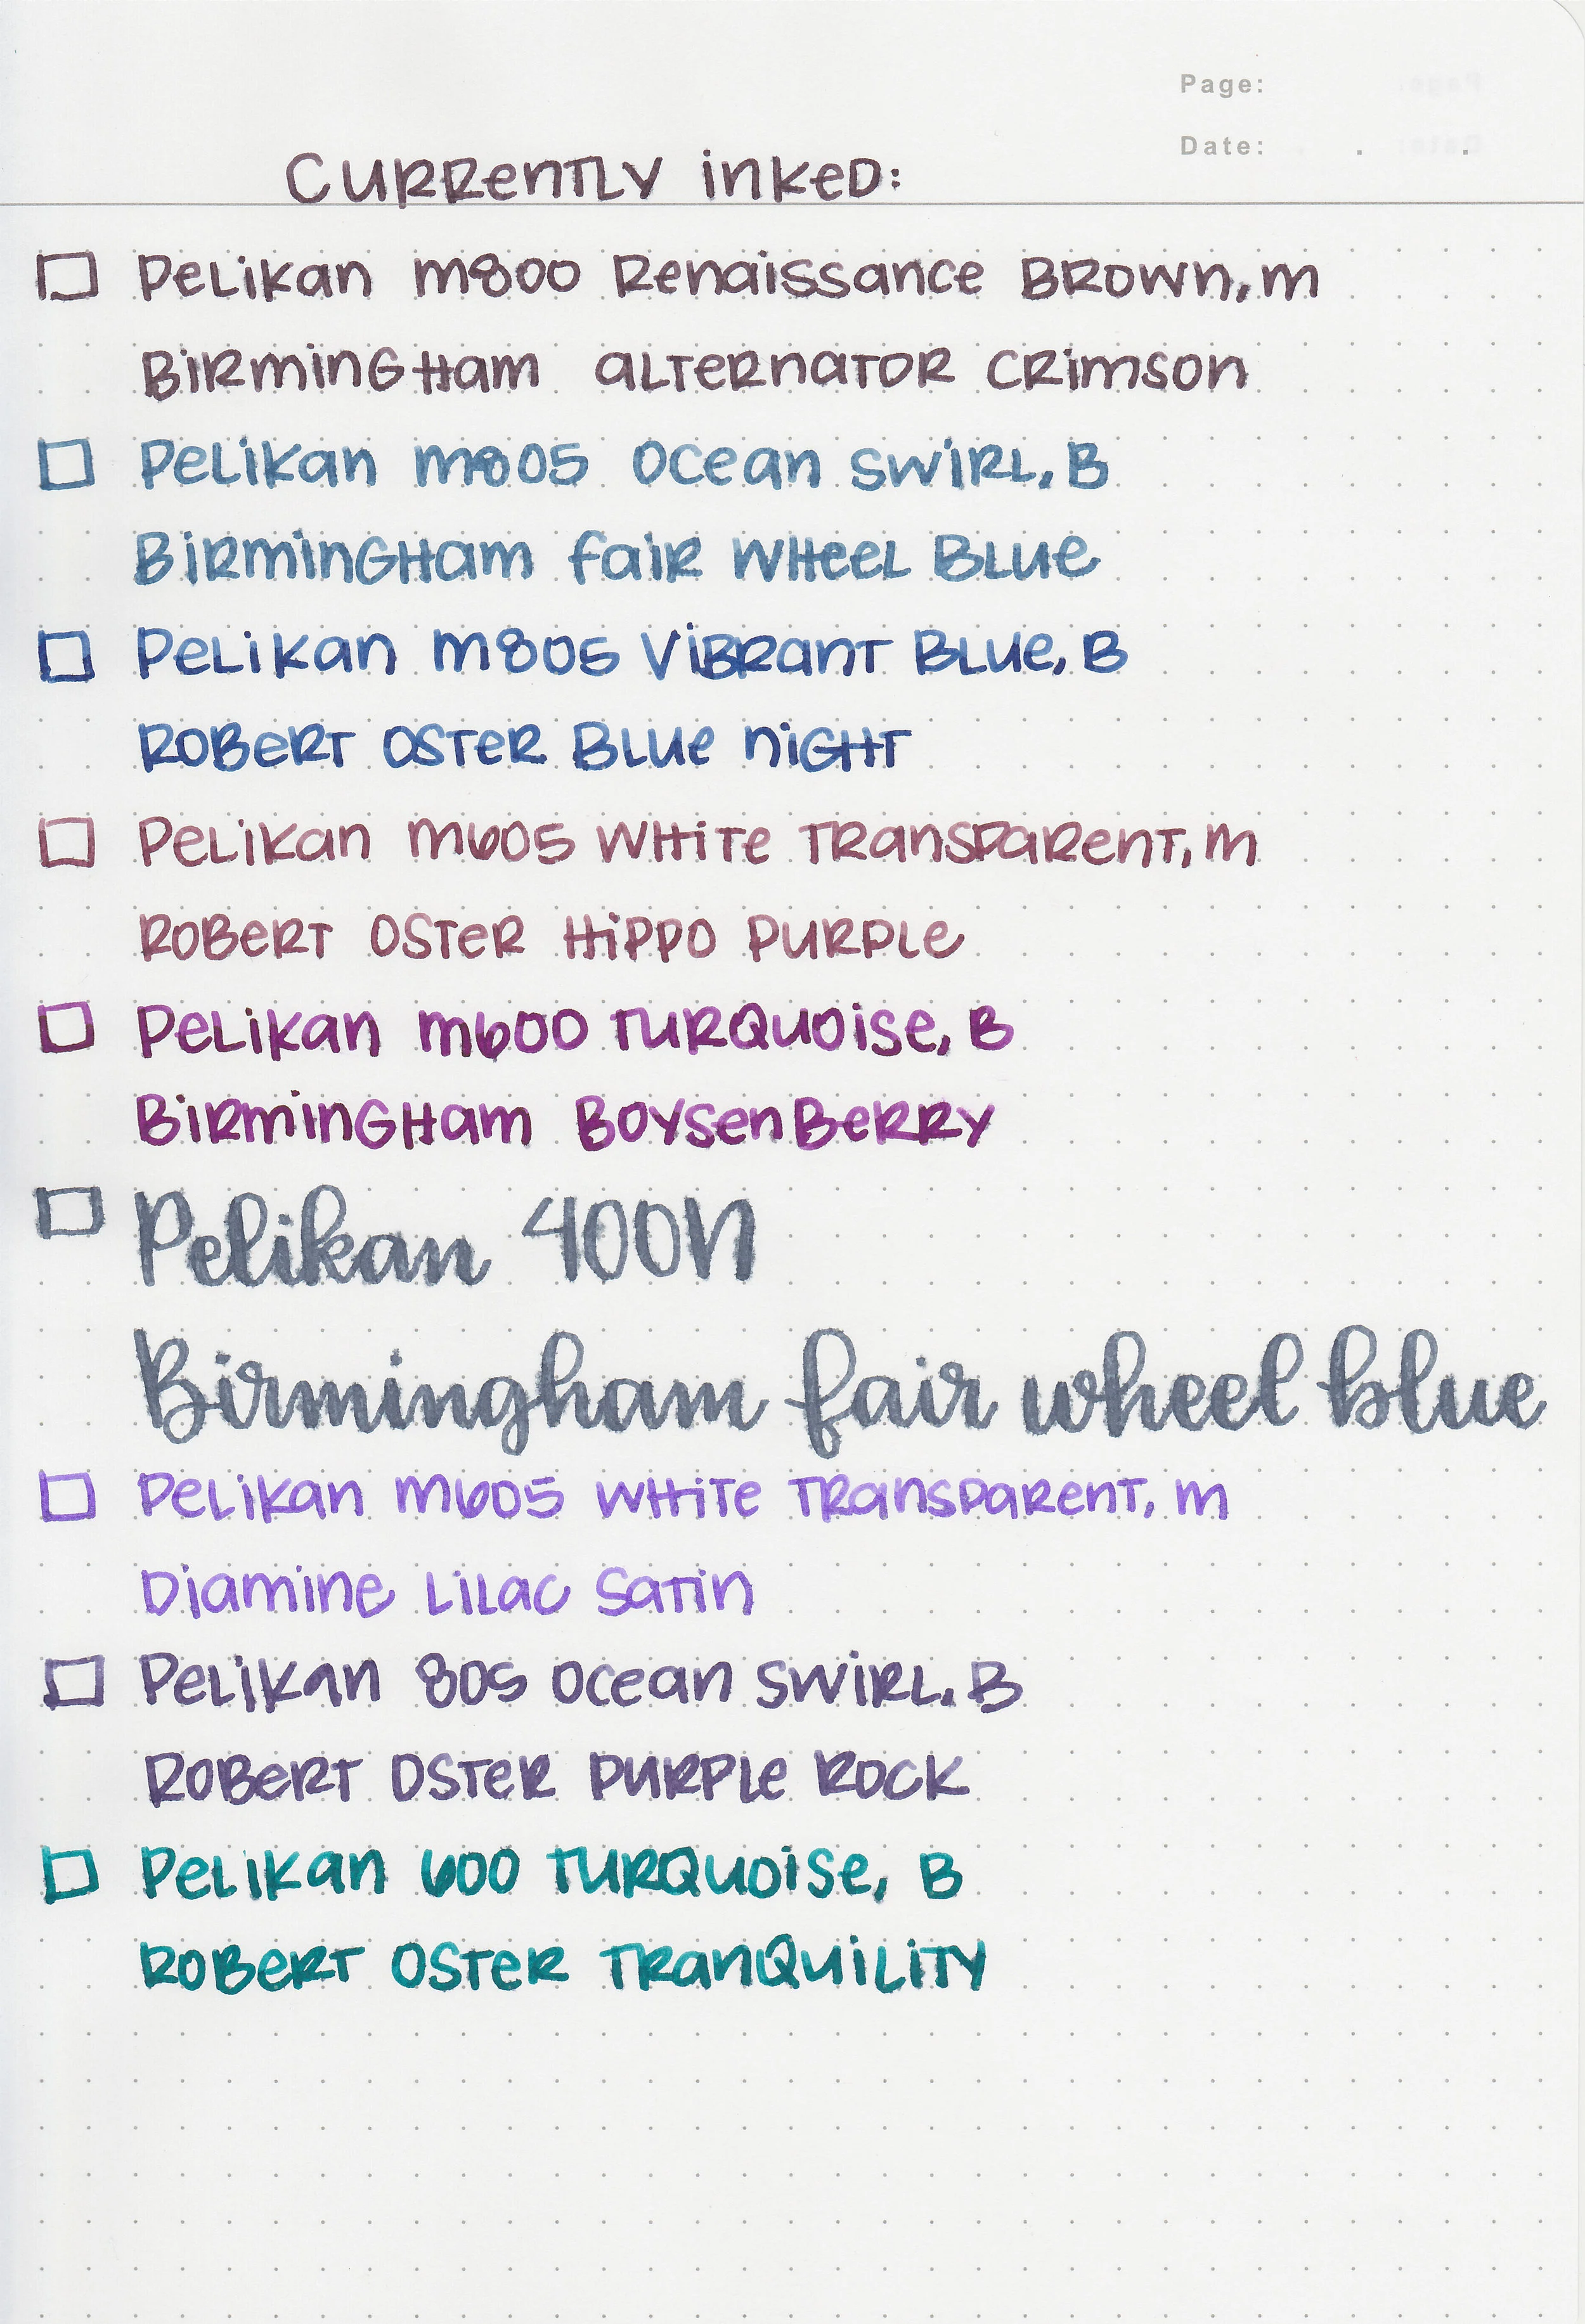 Page:
Date: . .
Currently inked:
Pelikan m800 Renaissance Brown, m
Birmingham alternator crimson
Pelikan m805 Ocean Swirl, B
Birmingham fair wheel Blue
Pelikan m805 Vibrant Blue, B
Robert Oster Blue night
Pelikan m605 White Transparent, m
Robert Oster Hippo Purple
Pelikan m600 Turquoise, B
Birmingham Boysenberry
Pelikan 400N
Birmingham fair wheel blue
Pelikan m605 White Transparent, m
Diamine Lilac Satin
Pelikan 805 Ocean Swirl, B
Robert Oster Purple Rock
Pelikan 600 Turquoise, B
Robert Oster Tranquility